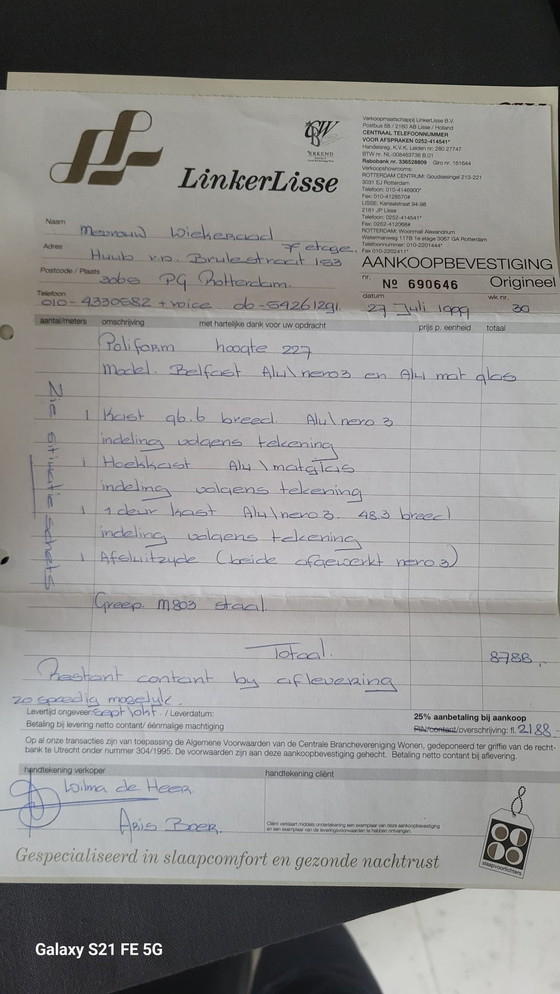 LinkerLisse
CBW
ERKEND
Verkoopmaatschappij LinkerLisse B.V.
Postbus 88 / 2160 AB Lisse / Holland
CENTRAAL TELEFOONNUMMER
VOOR AFSPRAKEN 0252-414541*
Handelsreg. K.V.K. Leiden nr: 280 27747
BTW nr. NL-008463736 B.01
Rabobank nr. 336528809 Giro nr. 161644
Verkoopshowrooms:
ROTTERDAM CENTRUM: Goudsesingel 213-221
3031 EJ Rotterdam
Telefoon: 010-4146900*
Fax: 010-4128570#
LISSE: Kanaalstraat 94-98
2161 JP Lisse
Telefoon: 0252-414541*
Fax: 0252-412068#
ROTTERDAM: Woonmall Alexandrium
Watermanweg 117B 1e etage 3067 GA Rotterdam
Telefoonnummer: 010-2201444*
Fax 010-2202411*
AANKOOPBEVESTIGING
nr. Nº 690646 Origineel
datum 27 Juli 1999 wk nr. 30
Naam Mevrouw Wiekeraad
7e etage.
Adres Huub v.d. Brulestraat 153
Postcode / Plaats 3065 PG Rotterdam.
Telefoon 010-4330582 + voice 06-54261291.
aantal/meters omschrijving met hartelijke dank voor uw opdracht prijs p. eenheid totaal
Poliform hoogte 227
Model. Belfast Alu\nero3 en Alu mat glas
Zie situatie schets
1 Kast 96.6 breed. Alu\nero 3
indeling volgens tekening
1 Hoekkast Alu\matglas
indeling volgens tekening
1 1 deur kast Alu\nero 3. 48.3 breed
indeling volgens tekening
1 Afsluitzyde (beide afgewerkt nero 3)
Greep M803 staal.
Totaal. 8788,-
Restant contant by aflevering
zo spoedig mogelyk.
Levertijd ongeveer: sept/okt. / Leverdatum:
Betaling bij levering netto contant/ éénmalige machtiging
25% aanbetaling bij aankoop
PIN/contant/overschrijving: fl. 2188-
Op al onze transacties zijn van toepassing de Algemene Voorwaarden van de Centrale Branchevereniging Wonen, gedeponeerd ter griffie van de recht-
bank te Utrecht onder nummer 304/1995. De voorwaarden zijn aan deze aankoopbevestiging gehecht. Betaling netto contant bij aflevering.
handtekening verkoper handtekening cliënt
Wilma de Heer
Aris Boer.
Cliënt verklaart middels ondertekening een exemplaar van deze aankoopbevestiging
en een exemplaar van de leveringsvoorwaarden te hebben ontvangen.
slaapvoorlichters
Gespecialiseerd in slaapcomfort en gezonde nachtrust
Galaxy S21 FE 5G